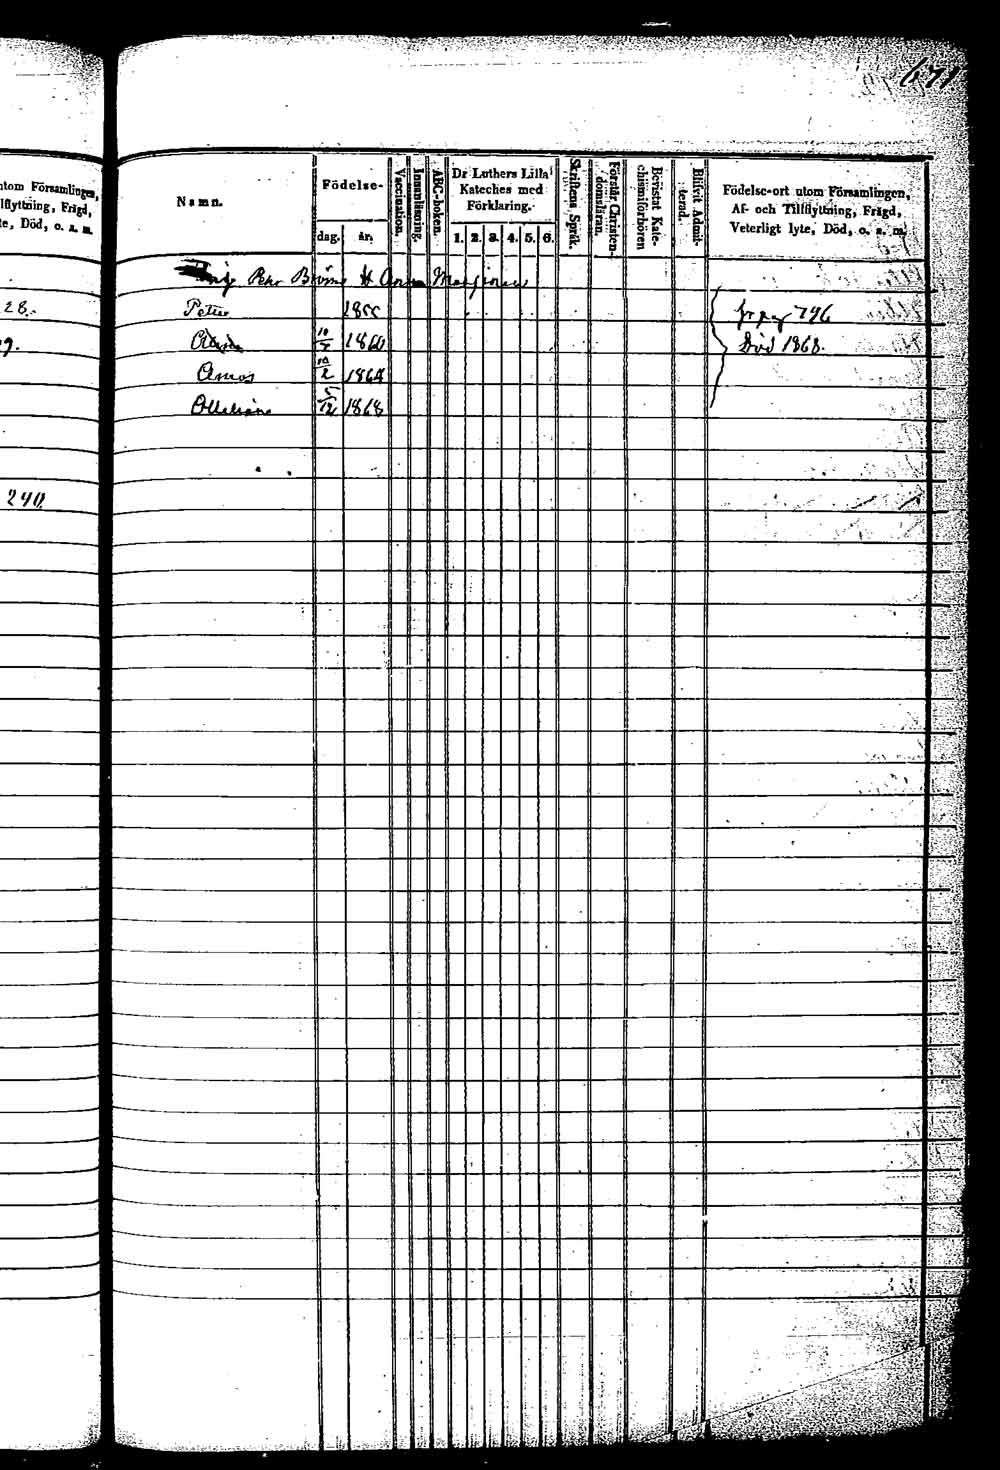 671.
utom Församlingen,
llflyttning, Frägd,
te, Död, o. s. m.
28.
9.
240.
Namn.
Födelse-
dag.
år.
Vaccination.
Innanläsning.
ABC-boken.
Dr Luthers Lilla
Kateches med
Förklaring.
1. 2. 3. 4. 5. 6.
Skriftens Språk.
Förstår Christen-
domsläran.
Bevistat Kate-
chismiförhören
Blifvit Admit-
terad.
Födelse-ort utom Församlingen,
Af- och Tillflyttning, Frägd,
Veterligt lyte, Död, o. s. m.
Pehr H Anna
Petter 1855 fr pag 746
10 1860 Död 1868.
Amos 10/2 1864
5/12 1868